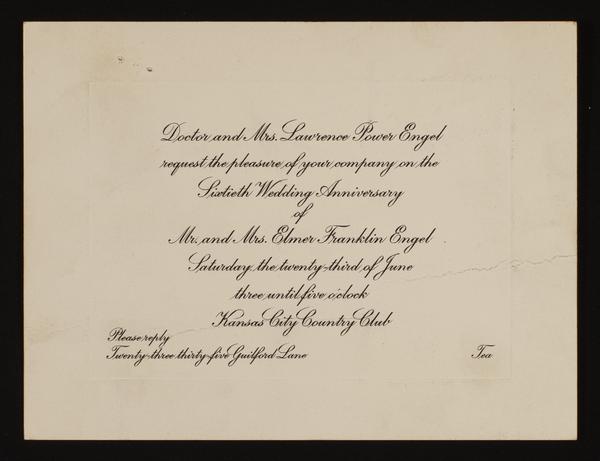 Doctor and Mrs. Lawrence Power Engel
request the pleasure of your company on the
Sixtieth Wedding Anniversary
of
Mr. and Mrs. Elmer Franklin Engel
Saturday, the twenty-third of June
three until five o'clock
Kansas City Country Club
Please reply
Twenty-three thirty-five Guilford Lane
Tea